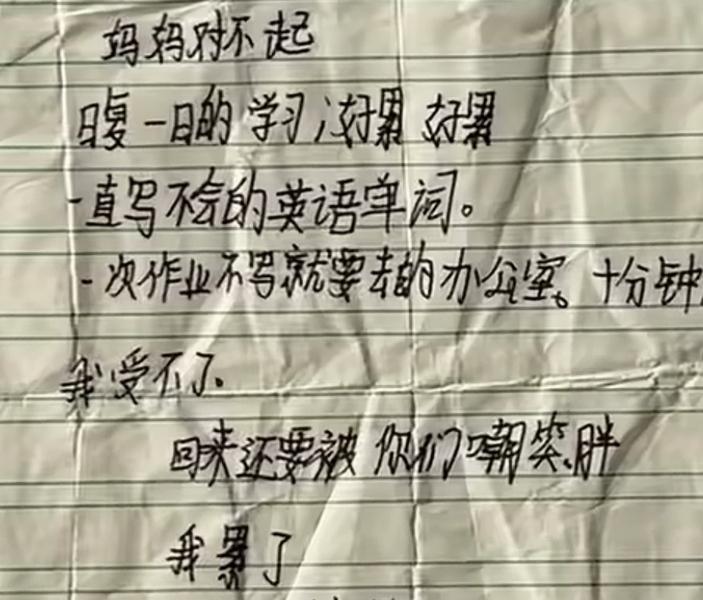 妈妈对不起
日复一日的学习，好累 好累
一直写不会的英语单词。
一次作业不写就要去的办公室。十分钟
我受不了。
回来还要被你们嘲笑。胖
我累了